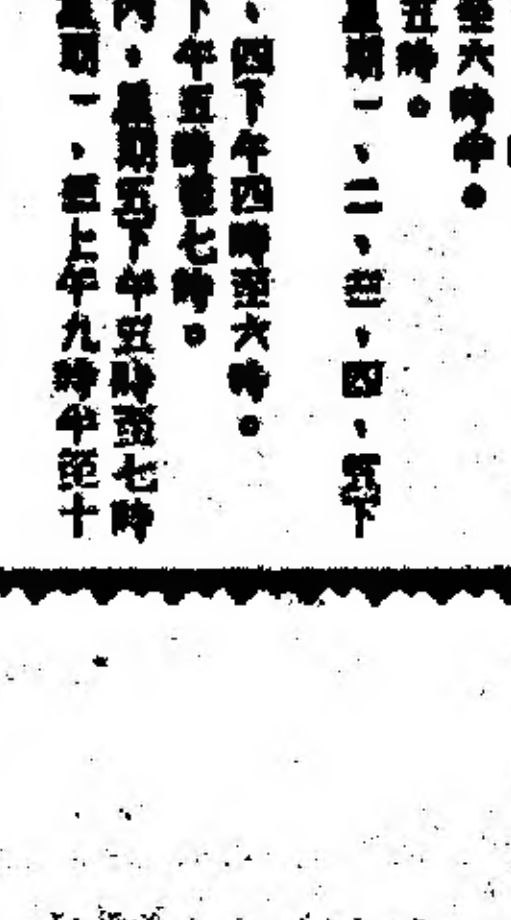 至六時半。
五時。
星期一、二、三、四、五下
、四下午四時至六時。
下午五時至七時。
內、星期五下午五時至七時
星期一、四上午九時半至十